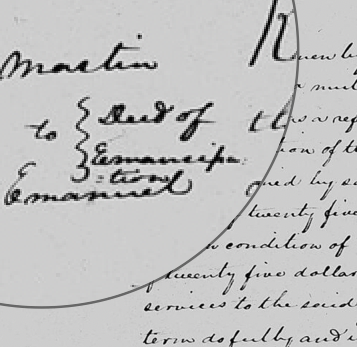 Martin
to { Deed of
Emancipa
=tion }
Emanuel
Know
mul
this a ref
ion of th
by s
twenty five
condition of
twenty five dollar
services to the said
term do fully and